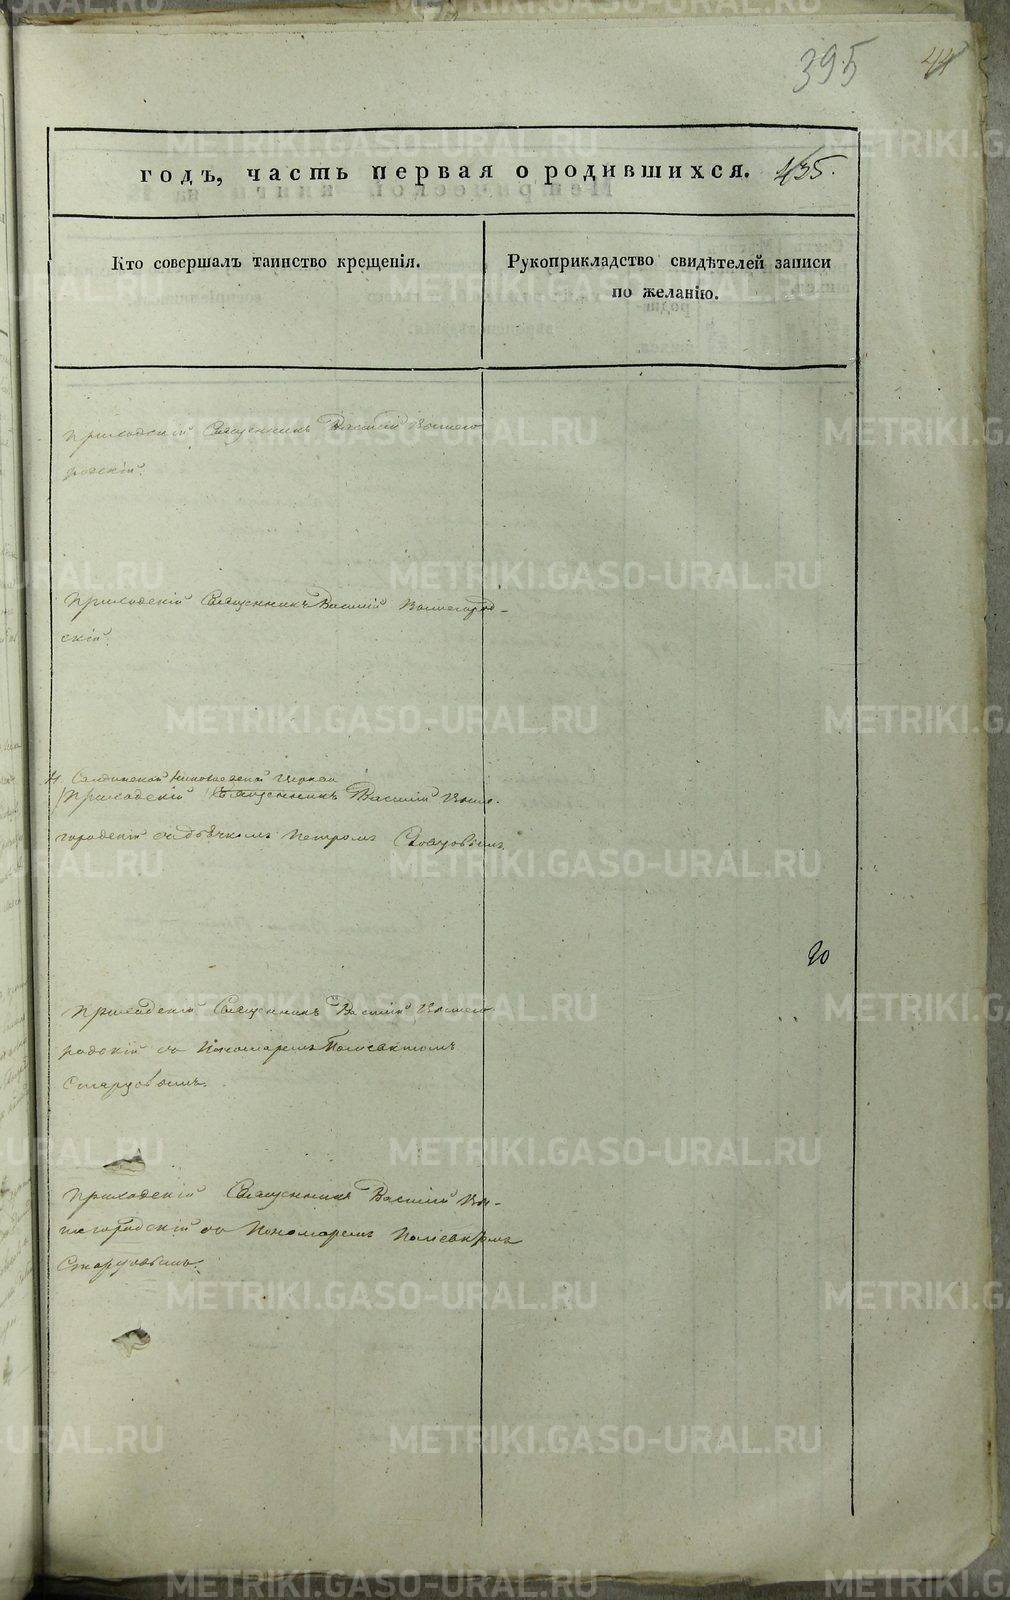 395 44
годъ, часть первая о родившихся. 435.
Кто совершалъ таинство крещенія.
Рукоприкладство свидѣтелей записи
по желанію.
Приходскій Священникъ Василій Вышего
родскій.
Приходскій Священникъ Василій Вышегород-
скій.
Салдинской Николаевской Церкви
Приходскій Священникъ Василій Выше-
городскій съ дьячкомъ Петромъ
20
Приходскій Священникъ Василій Вышего
родскій со Пономаремъ Поліевктомъ
Старцовымъ.
Приходскій Священникъ Василій Вы-
шегородскій со Пономаремъ Поліевктомъ
Старцовымъ.
METRIKI.GASO-URAL.RU